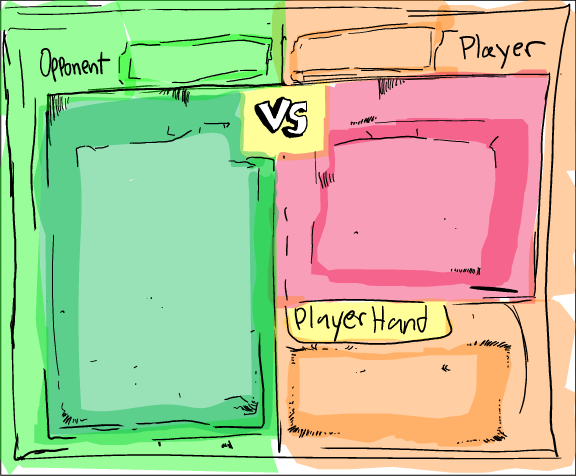 Opponent
Player
VS
Player Hand